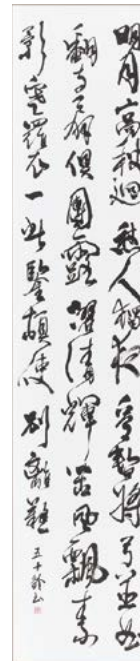 明月高秋迥愁人獨夜看暫將弓並曲
翻與扇俱團露濯清輝苦風飄素
影寒羅衣一此鑒頓使別離難 五十鈴